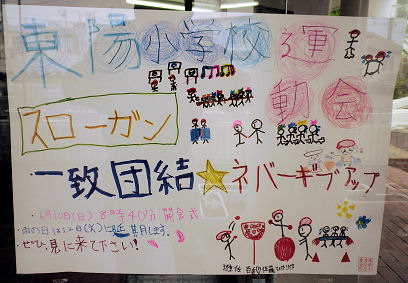 東陽小学校運動会
スローガン
一致団結☆ネバーギブアップ
6月10日(日)8時40分開会式
雨の日は12日(火)に延期します。
ぜひ、見に来て下さい!